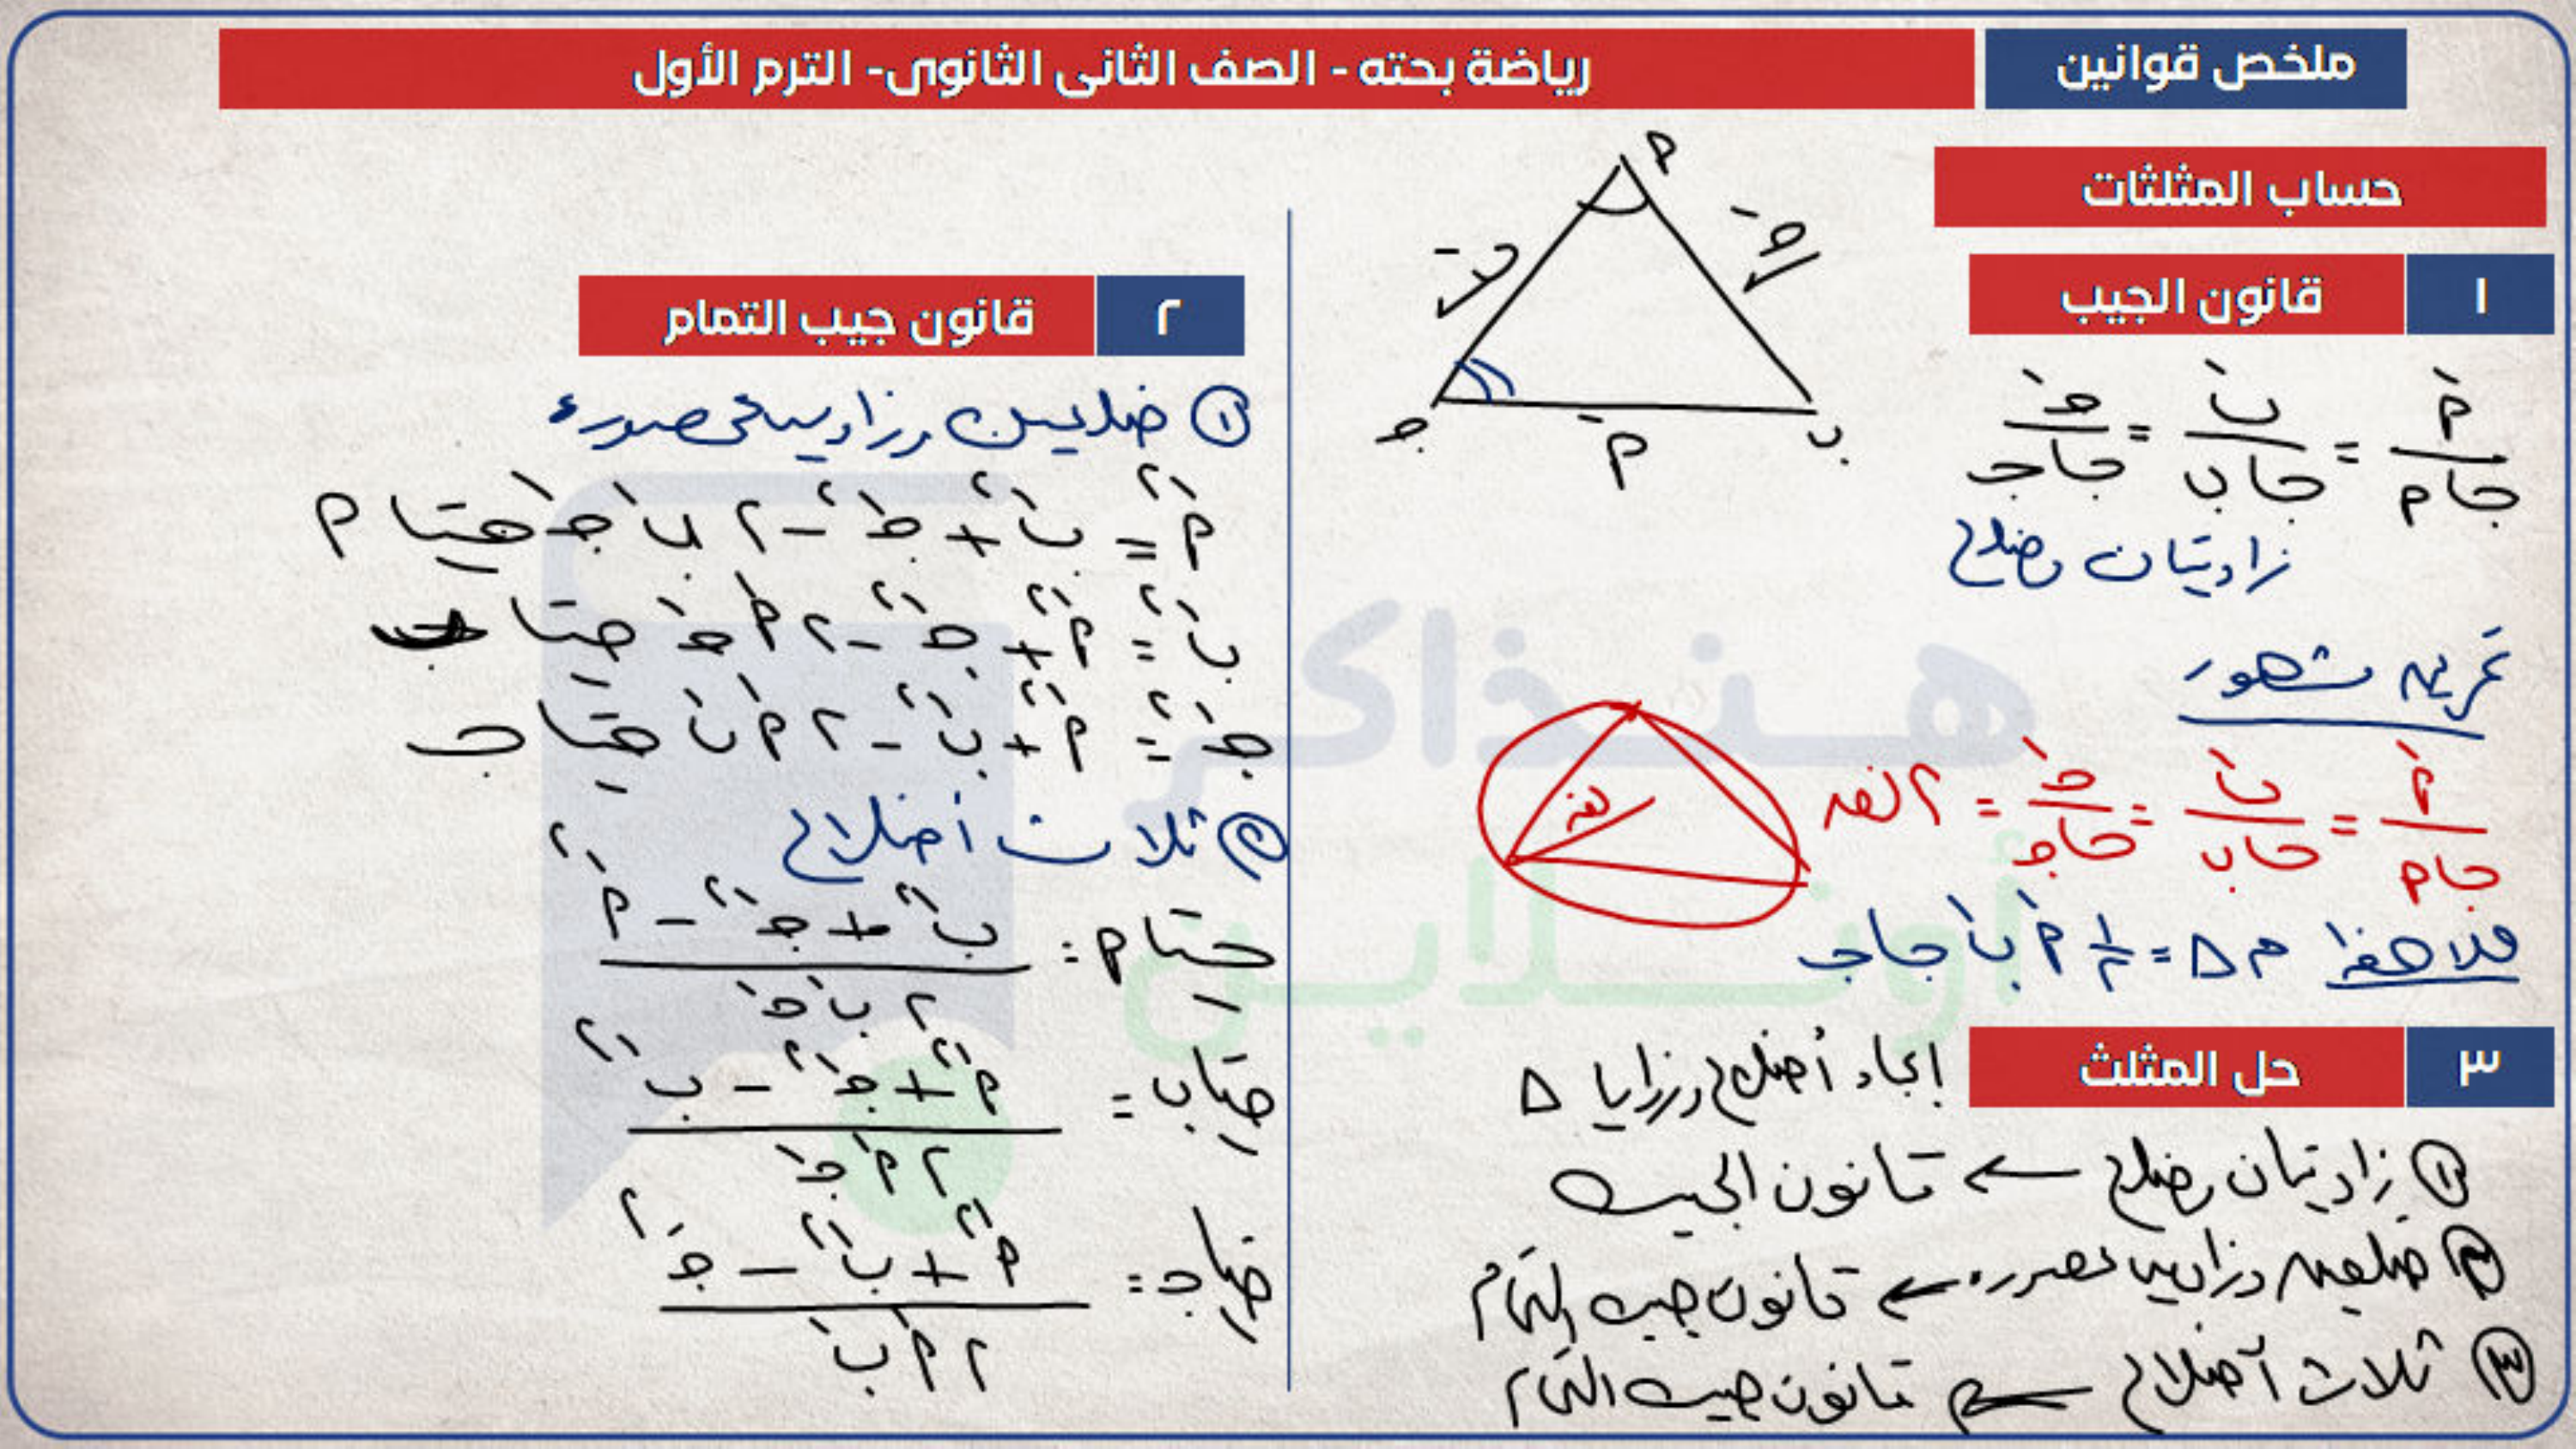 ملخص قوانين
رياضة بحته - الصف الثانى الثانوى- الترم الأول
حساب المثلثات
١ قانون الجيب
أَ/جا أ = بَ/جا ب = جـَ/جا جـ
زاويتان وضلع
تمرين مشهور
أَ/جا أ = بَ/جا ب = جـَ/جا جـ = ٢ نق
ملاحظة م Δ = ١/٢ أَ بَ جا جـ
أ
جـَ
بَ
جـ
أَ
ب
نق
٣ حل المثلث
إيجاد أضلاع وزوايا Δ
① زاويتان وضلع ← قانون الجيب
② ضلعين وزاوية محصورة ← قانون جيب التمام
③ ثلاث أضلاع ← قانون جيب التمام
٢ قانون جيب التمام
① ضلعين وزاوية محصورة
أَ² = بَ² + جـَ² - ٢ بَ جـَ جتا أ
بَ² = أَ² + جـَ² - ٢ أَ جـَ جتا ب
جـَ² = أَ² + بَ² - ٢ أَ بَ جتا جـ
② ثلاث أضلاع
جتا أ = (بَ² + جـَ² - أَ²)/(٢ بَ جـَ)
جتا ب = (أَ² + جـَ² - بَ²)/(٢ أَ جـَ)
جتا جـ = (أَ² + بَ² - جـَ²)/(٢ أَ بَ)
هنذاكر
أونلاين